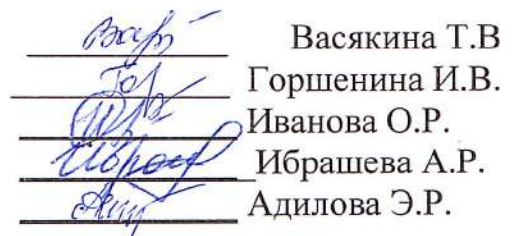 Васякина Т.В
Горшенина И.В.
Иванова О.Р.
Ибрашева А.Р.
Адилова Э.Р.